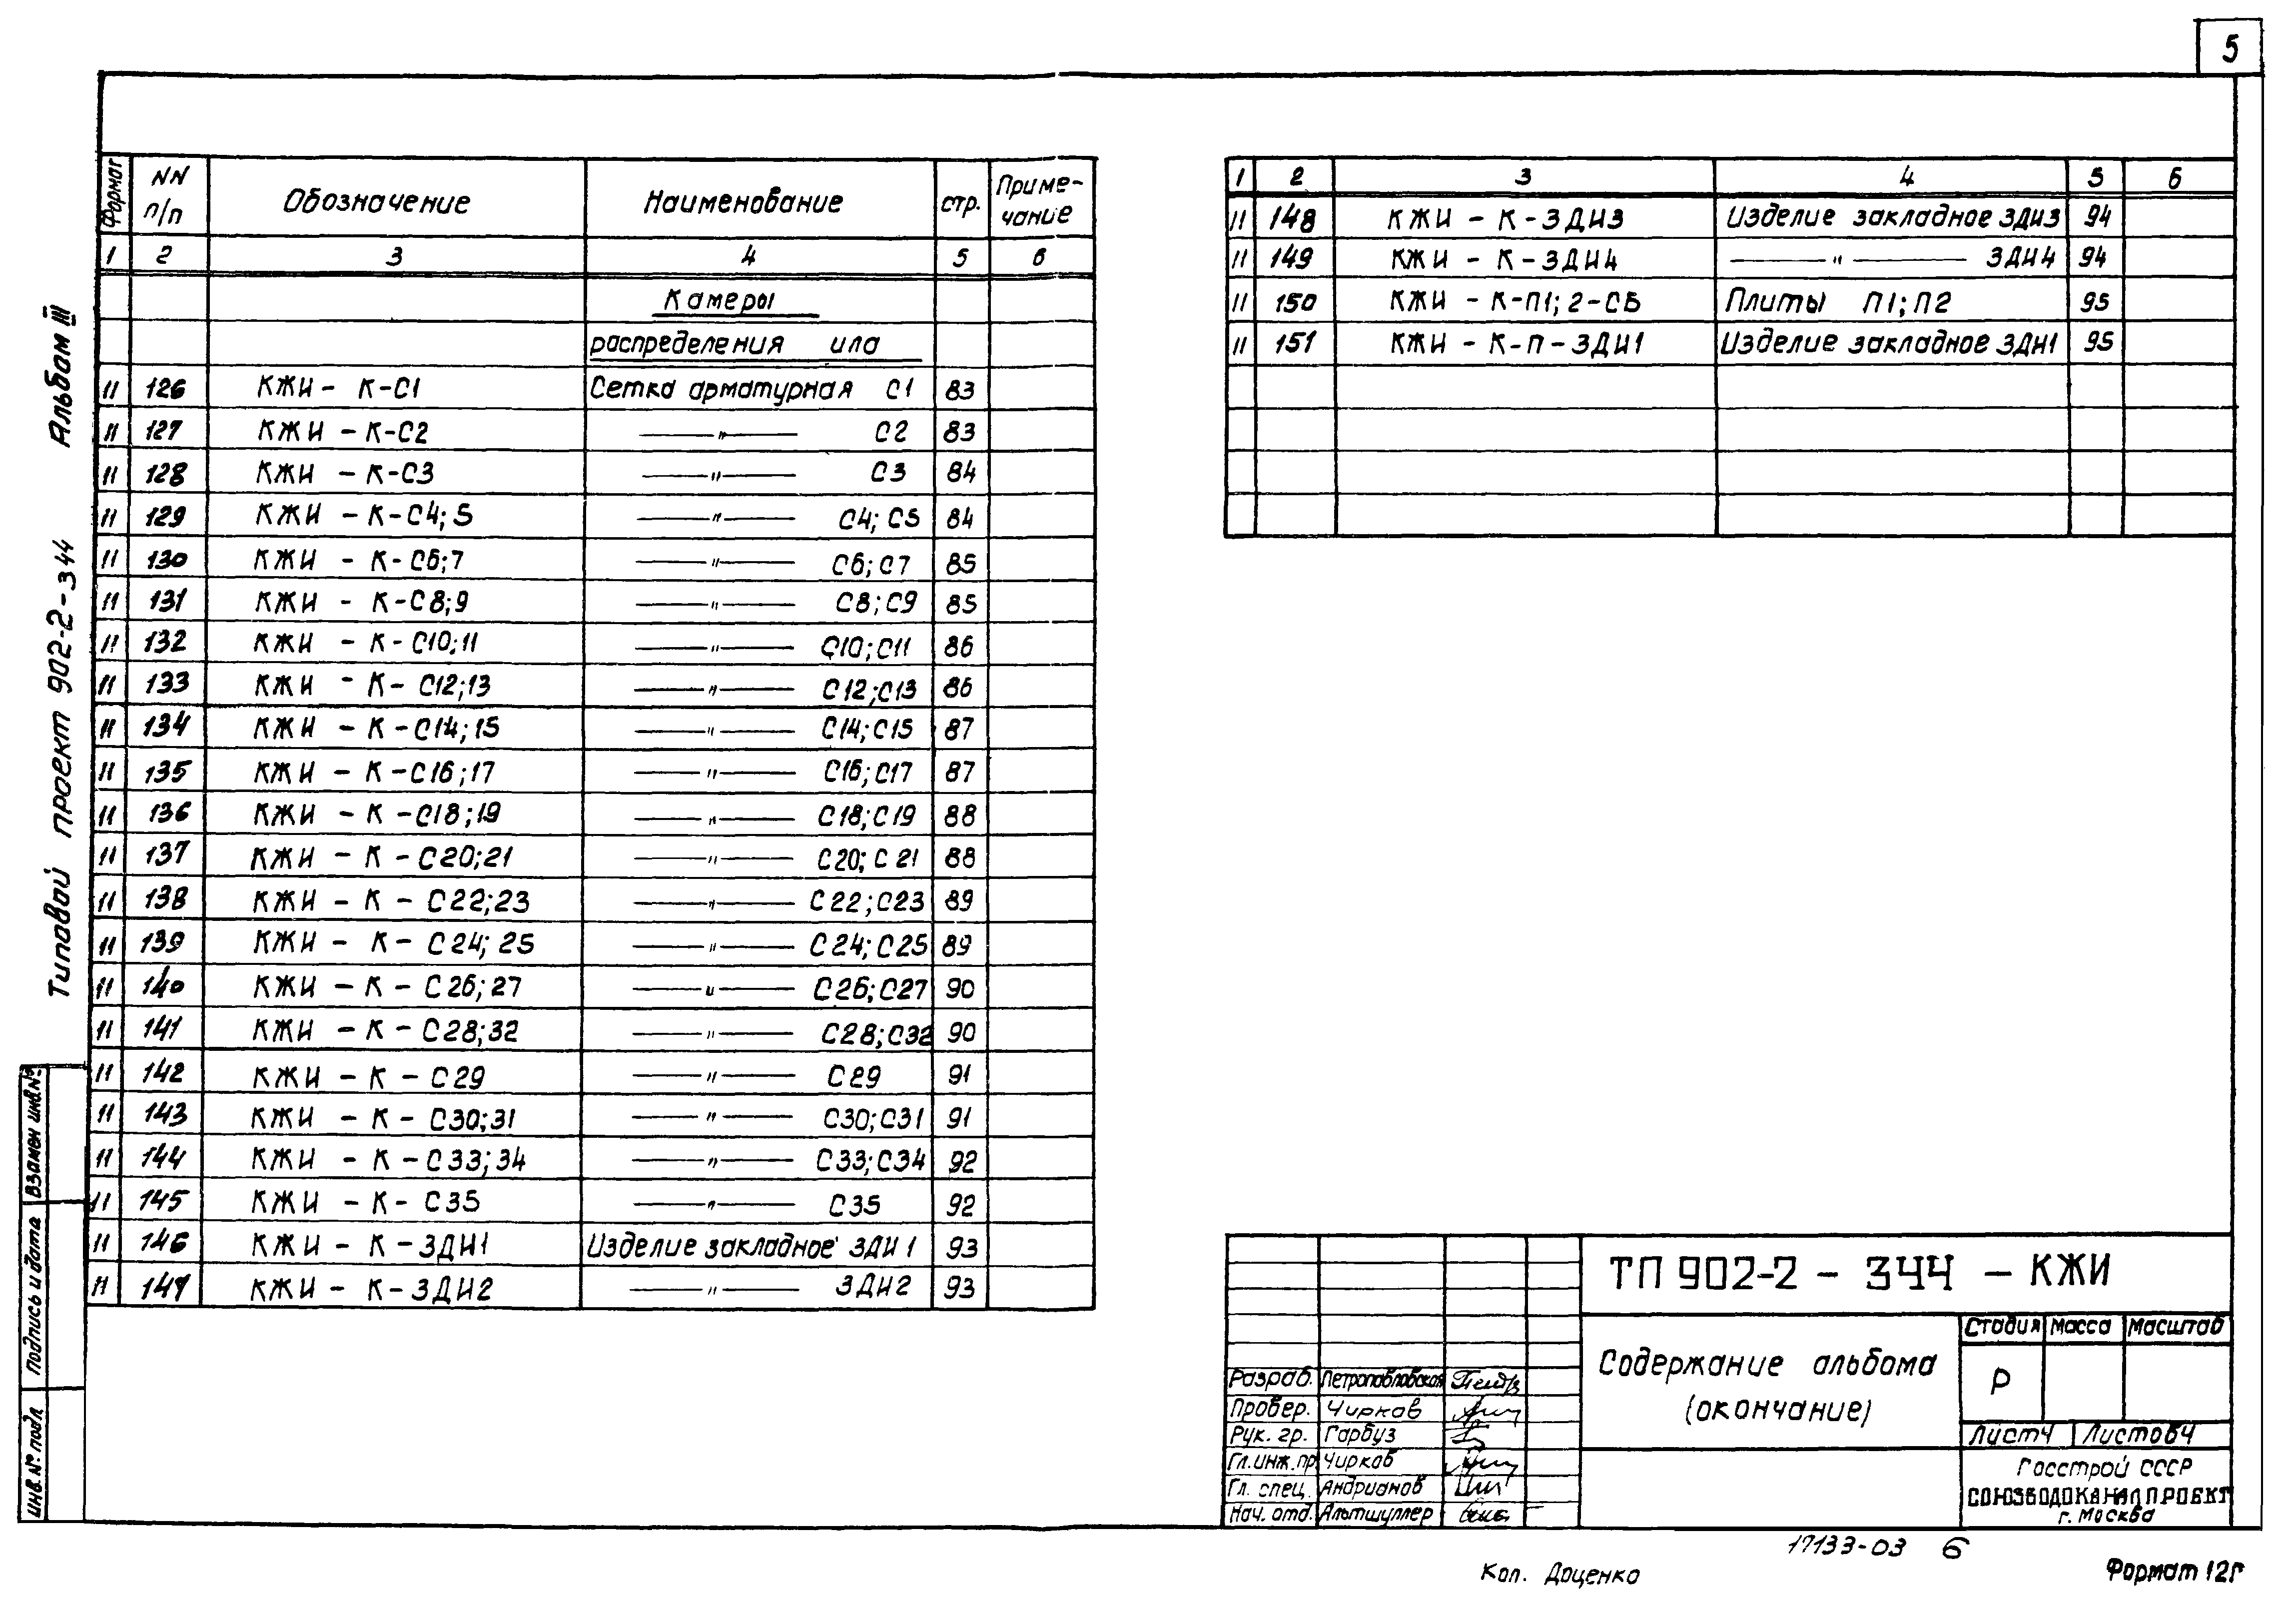 5
Формат NN п/п Обозначение Наименование стр. Приме-чание
1 2 3 4 5 6
Камеры
распределения ила
11 126 КЖИ - К-С1 Сетка арматурная С1 83
11 127 КЖИ - К-С2 —〃— С2 83
11 128 КЖИ - К-С3 —〃— С3 84
11 129 КЖИ - К-С4; 5 —〃— С4; С5 84
11 130 КЖИ - К-С6;7 —〃— С6; С7 85
11 131 КЖИ - К-С8;9 —〃— С8; С9 85
11 132 КЖИ - К-С10;11 —〃— С10; С11 86
11 133 КЖИ - К-С12;13 —〃— С12; С13 86
11 134 КЖИ - К-С14; 15 —〃— С14; С15 87
11 135 КЖИ - К-С16;17 —〃— С16; С17 87
11 136 КЖИ - К-С18;19 —〃— С18; С19 88
11 137 КЖИ - К-С20;21 —〃— С20; С21 88
11 138 КЖИ - К-С22;23 —〃— С22; С23 89
11 139 КЖИ - К-С24; 25 —〃— С24; С25 89
11 140 КЖИ - К-С26; 27 —〃— С26; С27 90
11 141 КЖИ - К-С28;32 —〃— С28; С32 90
11 142 КЖИ - К-С29 —〃— С29 91
11 143 КЖИ - К-С30;31 —〃— С30; С31 91
11 144 КЖИ - К-С33;34 —〃— С33; С34 92
11 145 КЖИ - К-С35 —〃— С35 92
11 146 КЖИ - К-ЗДИ1 Изделие закладное ЗДИ1 93
11 147 КЖИ - К-ЗДИ2 —〃— ЗДИ2 93
1 2 3 4 5 6
11 148 КЖИ - К-ЗДИ3 Изделие закладное ЗДИ3 94
11 149 КЖИ - К-ЗДИ4 —〃— ЗДИ4 94
11 150 КЖИ - К-П1; 2-СБ Плиты П1; П2 95
11 151 КЖИ - К-П-ЗДИ1 Изделие закладное ЗДИ1 95
Типовой проект 902-2-344 Альбом III
Взамен инв.№
Подпись и дата
Инв. № подл.
ТП 902-2 - 344 - КЖИ
Содержание альбома
(окончание)
Стадия Масса Масштаб
Р
Лист 4 Листов 4
Госстрой СССР
СОЮЗВОДОКАНАЛПРОЕКТ
г. Москва
Разраб. Петропавловская
Провер. Чирков
Рук. гр. Гарбуз
Гл.инж.пр Чирков
Гл. спец. Андрианов
Нач. отд. Альтшуллер
17133-03 6
Коп. Доценко
Формат 12г